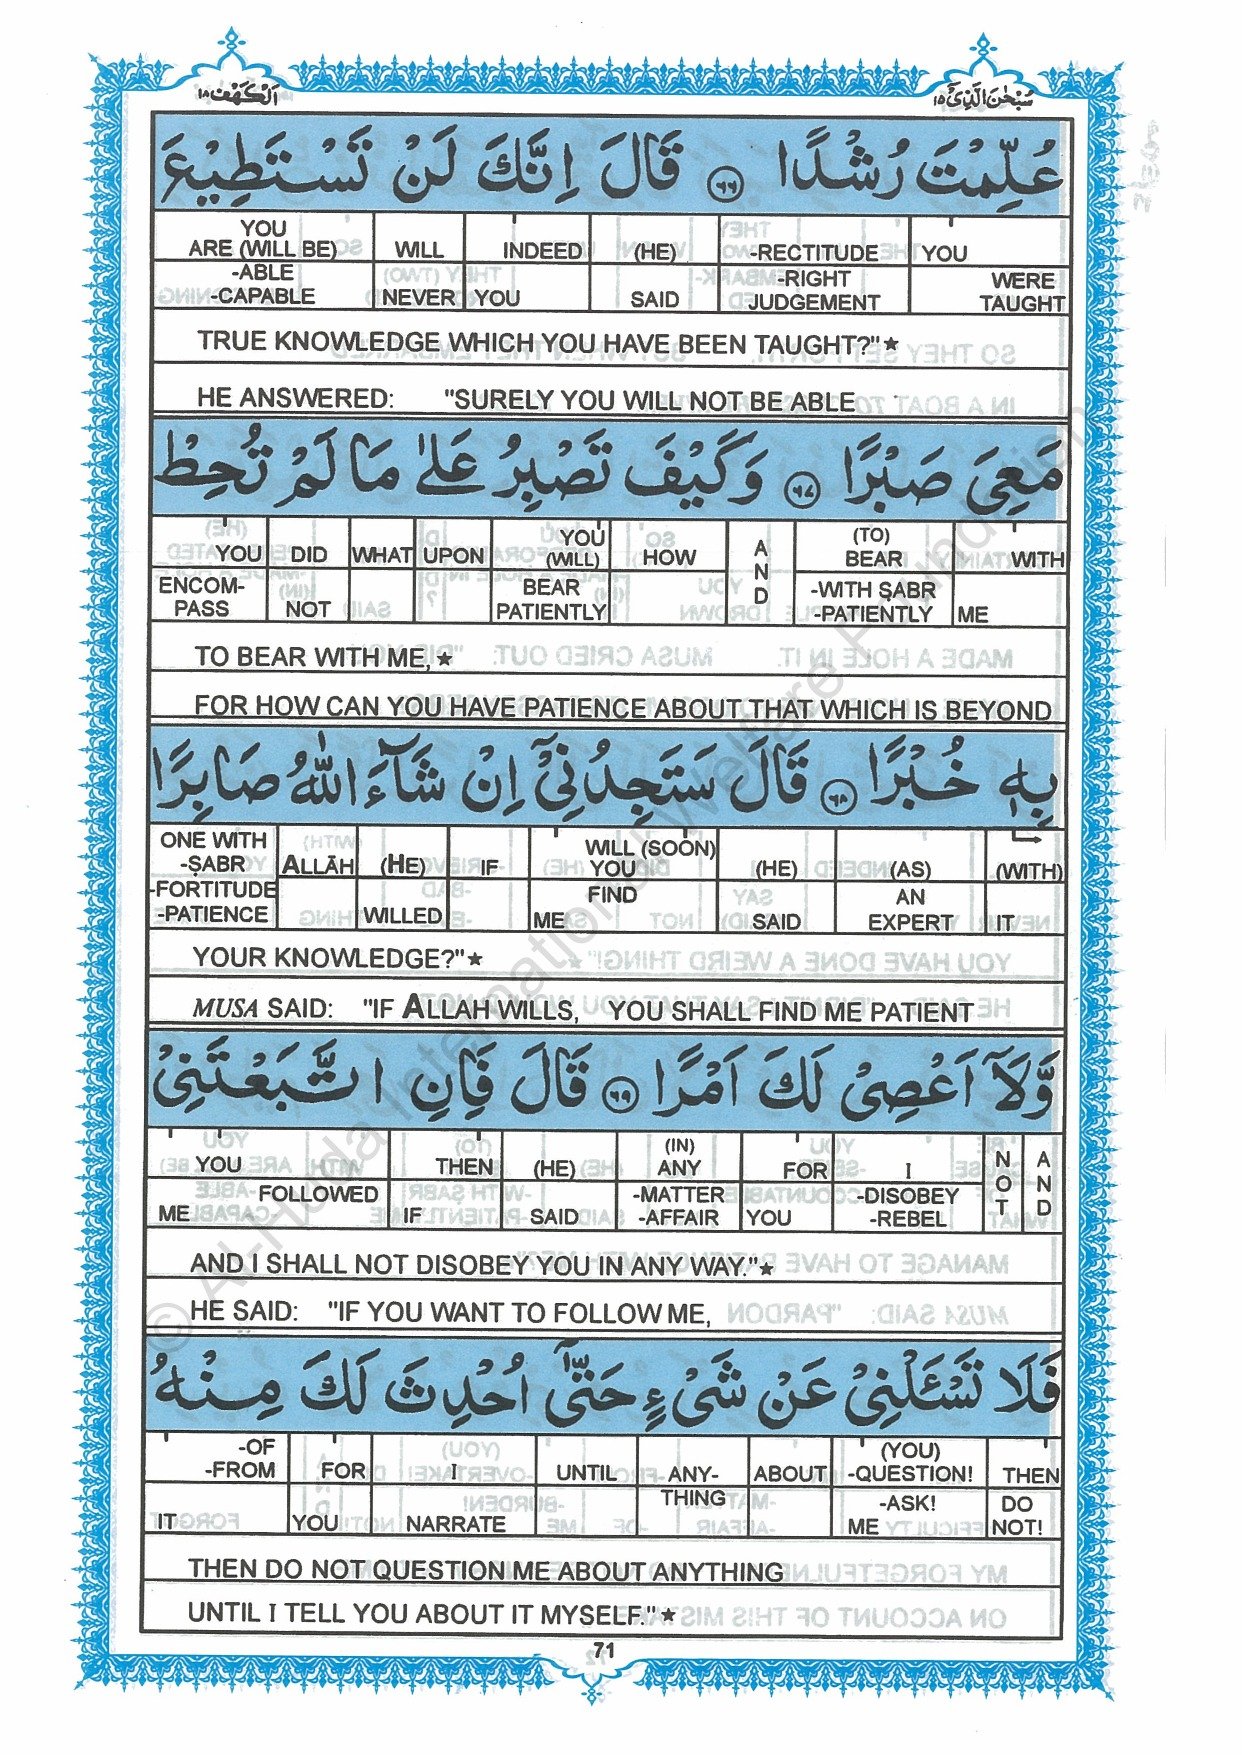 سُبْحٰنَ الَّذِىْۤ ١٥
اَلْكَهْف ١٨
عُلِّمْتَ رُشْدًا ٦٦ قَالَ اِنَّكَ لَنْ تَسْتَطِيْعَ
YOU ARE (WILL BE) WILL INDEED (HE) -RECTITUDE YOU
-ABLE -CAPABLE NEVER YOU SAID -RIGHT JUDGEMENT WERE TAUGHT
TRUE KNOWLEDGE WHICH YOU HAVE BEEN TAUGHT?"★
HE ANSWERED: "SURELY YOU WILL NOT BE ABLE
مَعِىَ صَبْرًا ٦٧ وَكَيْفَ تَصْبِرُ عَلٰى مَا لَمْ تُحِطْ
YOU DID WHAT UPON YOU (WILL) HOW AND (TO) BEAR WITH
ENCOM-PASS NOT BEAR PATIENTLY -WITH ṢABR -PATIENTLY ME
TO BEAR WITH ME,★
FOR HOW CAN YOU HAVE PATIENCE ABOUT THAT WHICH IS BEYOND
بِهٖ خُبْرًا ٦٨ قَالَ سَتَجِدُنِىْۤ اِنْ شَآءَ اللّٰهُ صَابِرًا
ONE WITH -ṢABR ALLĀH (HE) IF WILL (SOON) YOU (HE) (AS) (WITH)
-FORTITUDE -PATIENCE WILLED FIND ME SAID AN EXPERT IT
YOUR KNOWLEDGE?"★
MUSA SAID: "IF ALLAH WILLS, YOU SHALL FIND ME PATIENT
وَّلَاۤ اَعْصِىْ لَكَ اَمْرًا ٦٩ قَالَ فَاِنِ اتَّبَعْتَنِىْ
YOU THEN (HE) (IN) ANY FOR I NOT AND
ME FOLLOWED IF SAID -MATTER -AFFAIR YOU -DISOBEY -REBEL
AND I SHALL NOT DISOBEY YOU IN ANY WAY."★
HE SAID: "IF YOU WANT TO FOLLOW ME,
فَلَا تَسْـَٔلْنِىْ عَنْ شَىْءٍ حَتّٰىۤ اُحْدِثَ لَكَ مِنْهُ
-OF -FROM FOR I UNTIL ANY- ABOUT (YOU) -QUESTION! THEN
IT YOU NARRATE THING -ASK! ME DO NOT!
THEN DO NOT QUESTION ME ABOUT ANYTHING
UNTIL I TELL YOU ABOUT IT MYSELF."★
71
© Al-Huda International Welfare Foundation